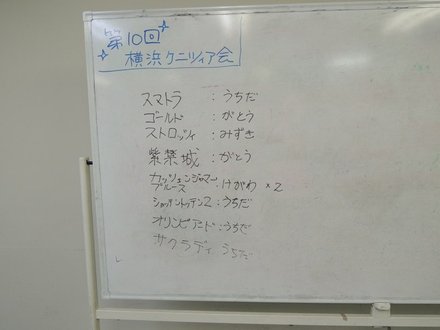 第10回
横浜クニツィア会
スマトラ : うちだ
ゴールド : がとう
ストロッツィ : みずき
紫禁城 : がとう
カッツェンジャマー
ブルース : けがわ ×2
ショッテントッテン2 : うちだ
オリンピアード : うちだ
サクラディ うちだ